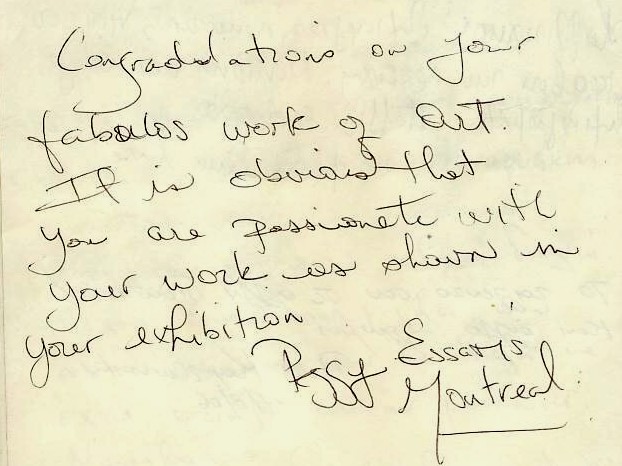 Congradulations on your
fabulos work of art.
It is obvious that
you are passionate with
your work as shown in
your exhibition
Peggy Essaris
Montreal